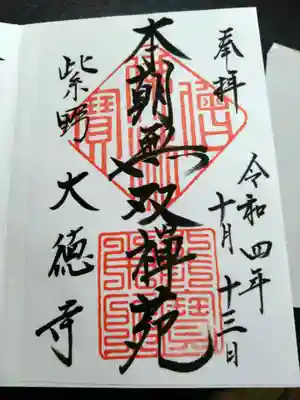 奉拝
令和四年
十月十三日
本朝無双禅苑
紫野大徳寺